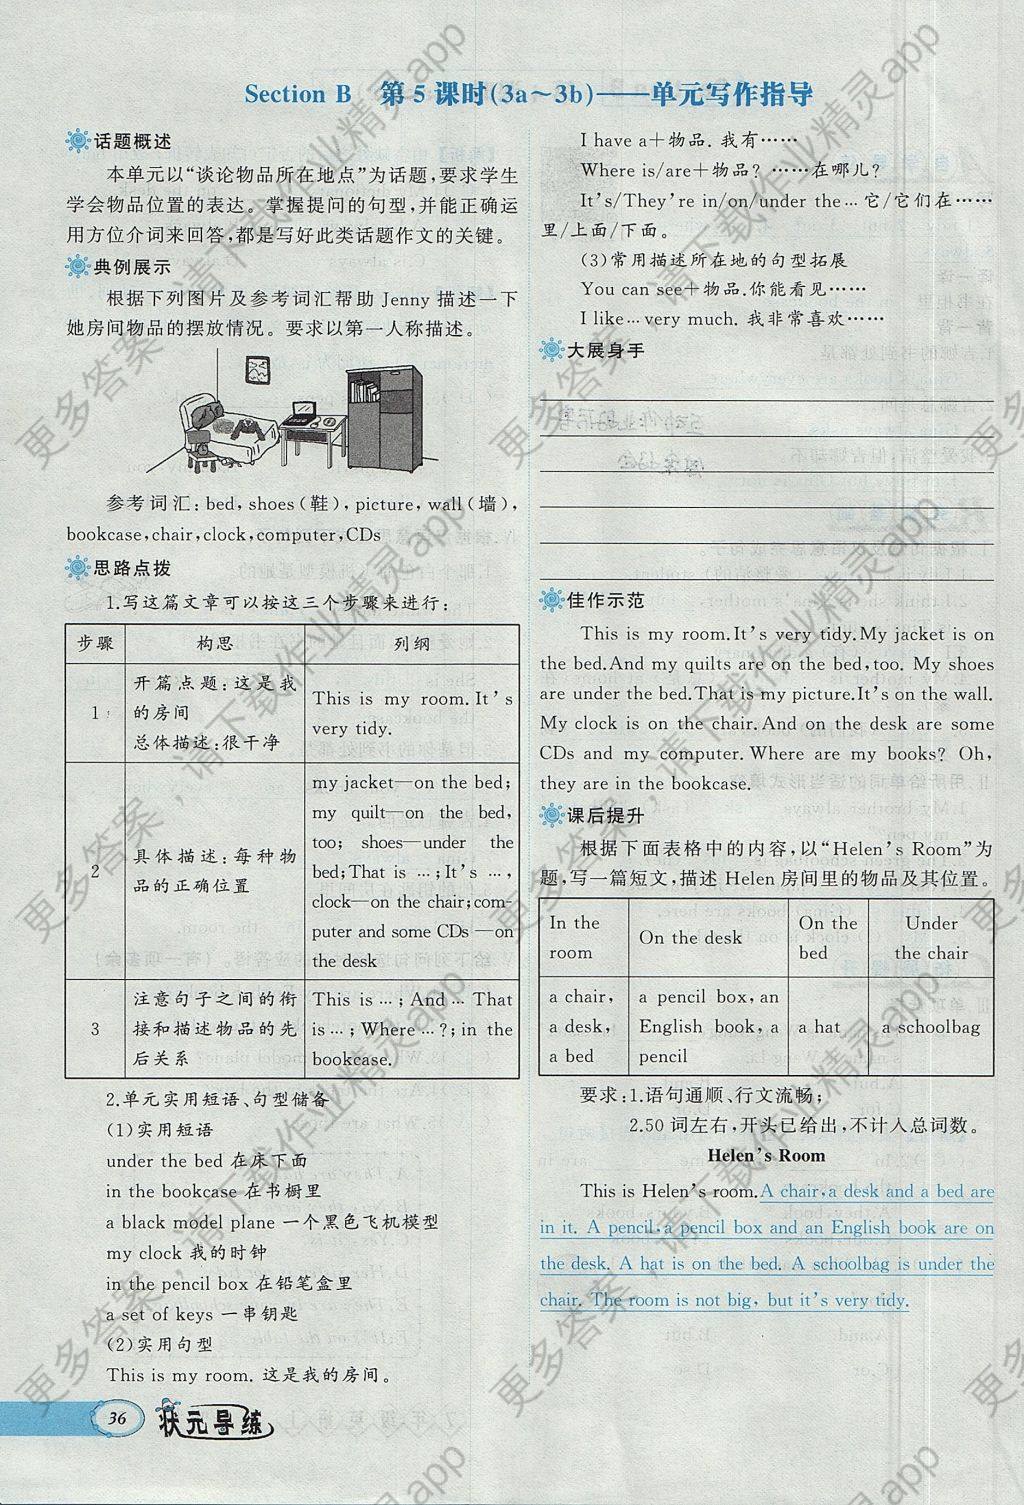 Section B 第5课时(3a～3b)——单元写作指导
话题概述
本单元以“谈论物品所在地点”为话题,要求学生
学会物品位置的表达。掌握提问的句型,并能正确运
用方位介词来回答,都是写好此类话题作文的关键。
典例展示
根据下列图片及参考词汇帮助 Jenny 描述一下
她房间物品的摆放情况。要求以第一人称描述。
参考词汇: bed, shoes(鞋), picture, wall(墙),
bookcase, chair, clock, computer, CDs
思路点拨
1.写这篇文章可以按这三个步骤来进行:
步骤 构思 列纲
1
开篇点题:这是我
的房间
总体描述:很干净
This is my room. It's
very tidy.
2
具体描述:每种物
品的正确位置
my jacket—on the bed;
my quilt—on the bed,
too; shoes—under the
bed; That is …; It's …,
clock—on the chair; com-
puter and some CDs —on
the desk
3
注意句子之间的衔
接和描述物品的先
后关系
This is …; And … That
is …; Where …?; in the
bookcase.
2.单元实用短语、句型储备
(1)实用短语
under the bed 在床下面
in the bookcase 在书橱里
a black model plane 一个黑色飞机模型
my clock 我的时钟
in the pencil box 在铅笔盒里
a set of keys 一串钥匙
(2)实用句型
This is my room. 这是我的房间。
I have a+物品. 我有……
Where is/are+物品? ……在哪儿?
It's/They're in/on/under the … 它/它们在……
里/上面/下面。
(3)常用描述所在地的句型拓展
You can see+物品.你能看见……
I like … very much. 我非常喜欢……
大展身手
佳作示范
This is my room. It's very tidy. My jacket is on
the bed. And my quilts are on the bed, too. My shoes
are under the bed. That is my picture. It's on the wall.
My clock is on the chair. And on the desk are some
CDs and my computer. Where are my books? Oh,
they are in the bookcase.
课后提升
根据下面表格中的内容,以“Helen's Room”为
题,写一篇短文,描述 Helen 房间里的物品及其位置。
In the
room
On the desk
On the
bed
Under
the chair
a chair,
a desk,
a bed
a pencil box, an
English book, a
pencil
a hat
a schoolbag
要求:1.语句通顺、行文流畅;
2.50词左右,开头已给出,不计入总词数。
Helen's Room
This is Helen's room. A chair, a desk and a bed are
in it. A pencil, a pencil box and an English book are on
the desk. A hat is on the bed. A schoolbag is under the
chair. The room is not big, but it's very tidy.
36 状元导练
更多答案，请下载作业精灵app